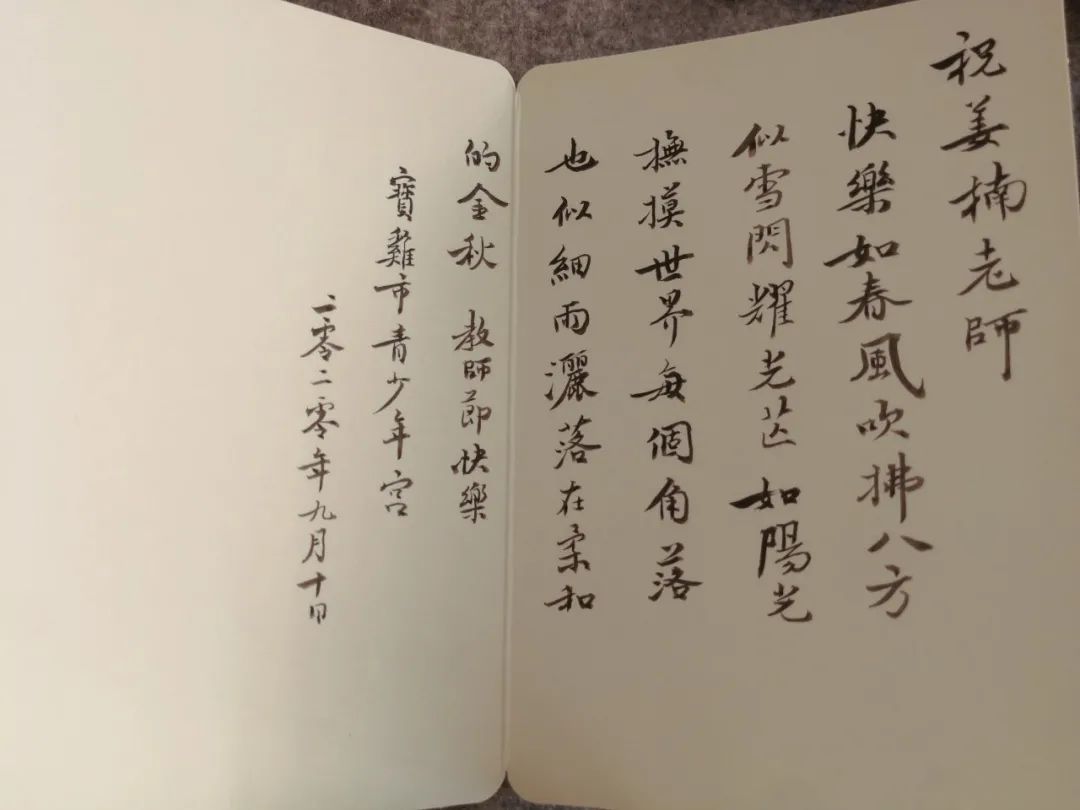 祝姜楠老師
快樂如春風吹拂八方
似雪閃耀光芒如陽光
撫摸世界每個角落
也似細雨灑落在柔和
的金秋 教師節快樂
寶雞市青少年宮
二零二零年九月十日